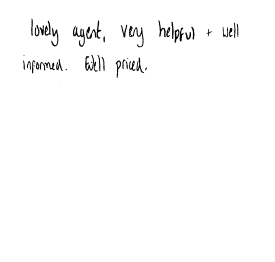 lovely agent, very helpful + well
informed. Well priced.